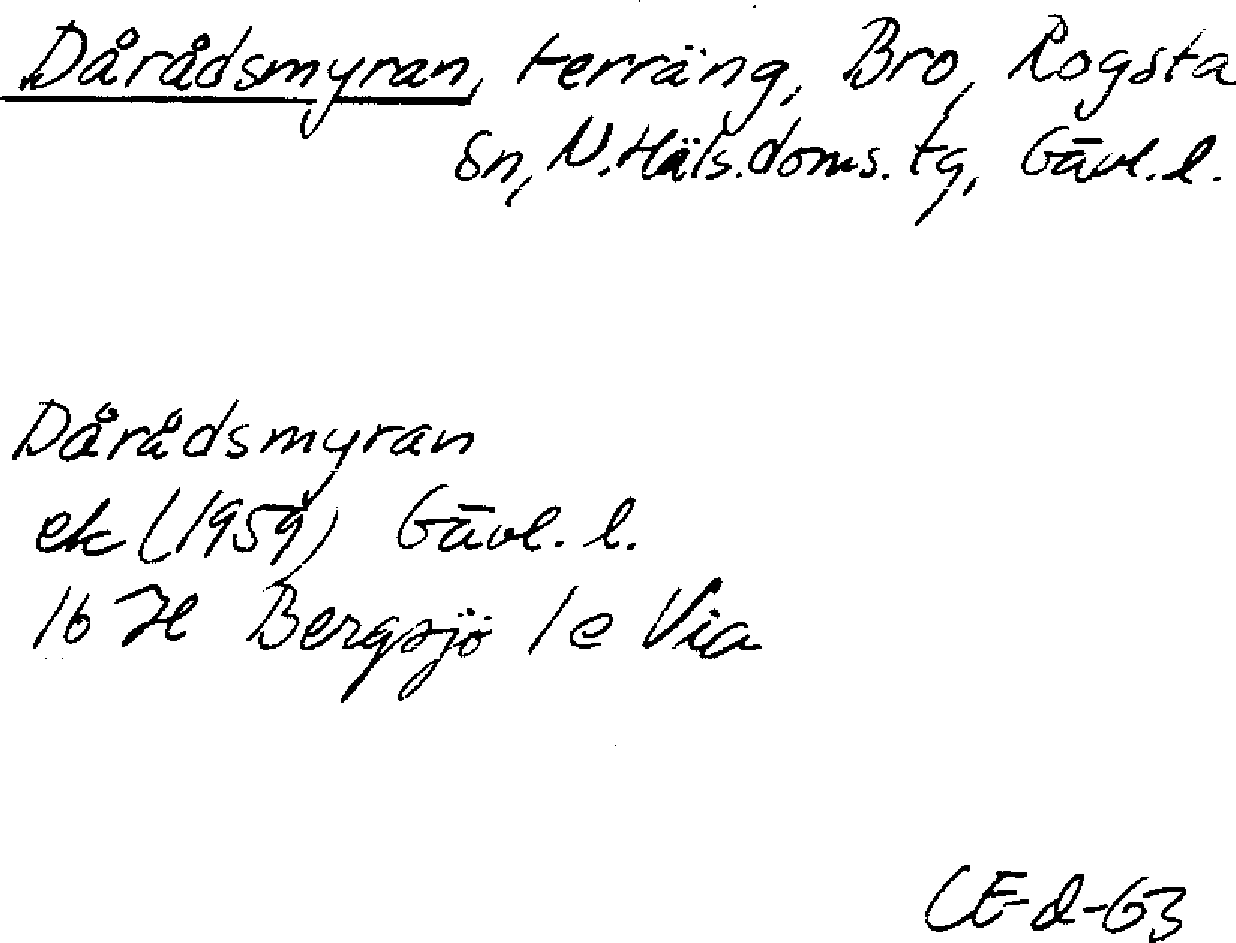 Dårådsmyran, terräng, Bro, Rogsta
sn, N. Häls. doms. tg, Gävl. l.
Dårådsmyran
ek (1959) Gävl. l.
16 H Bergsjö 1 e Via
CE-d-63